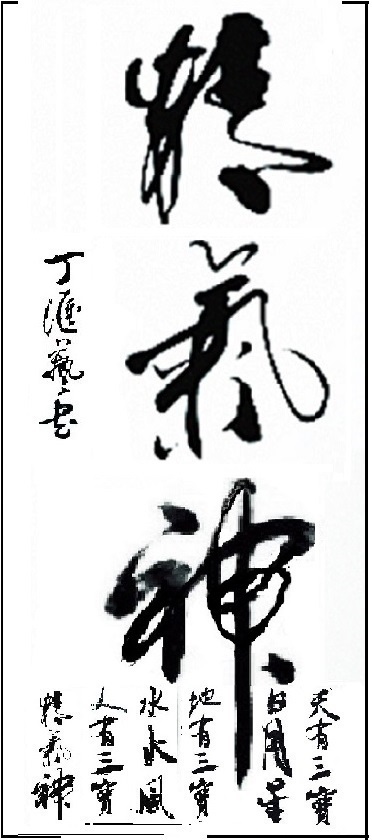 精
氣
神
天有三寶
日月星
地有三寶
水火風
人有三寶
精氣神
丁匯藝書